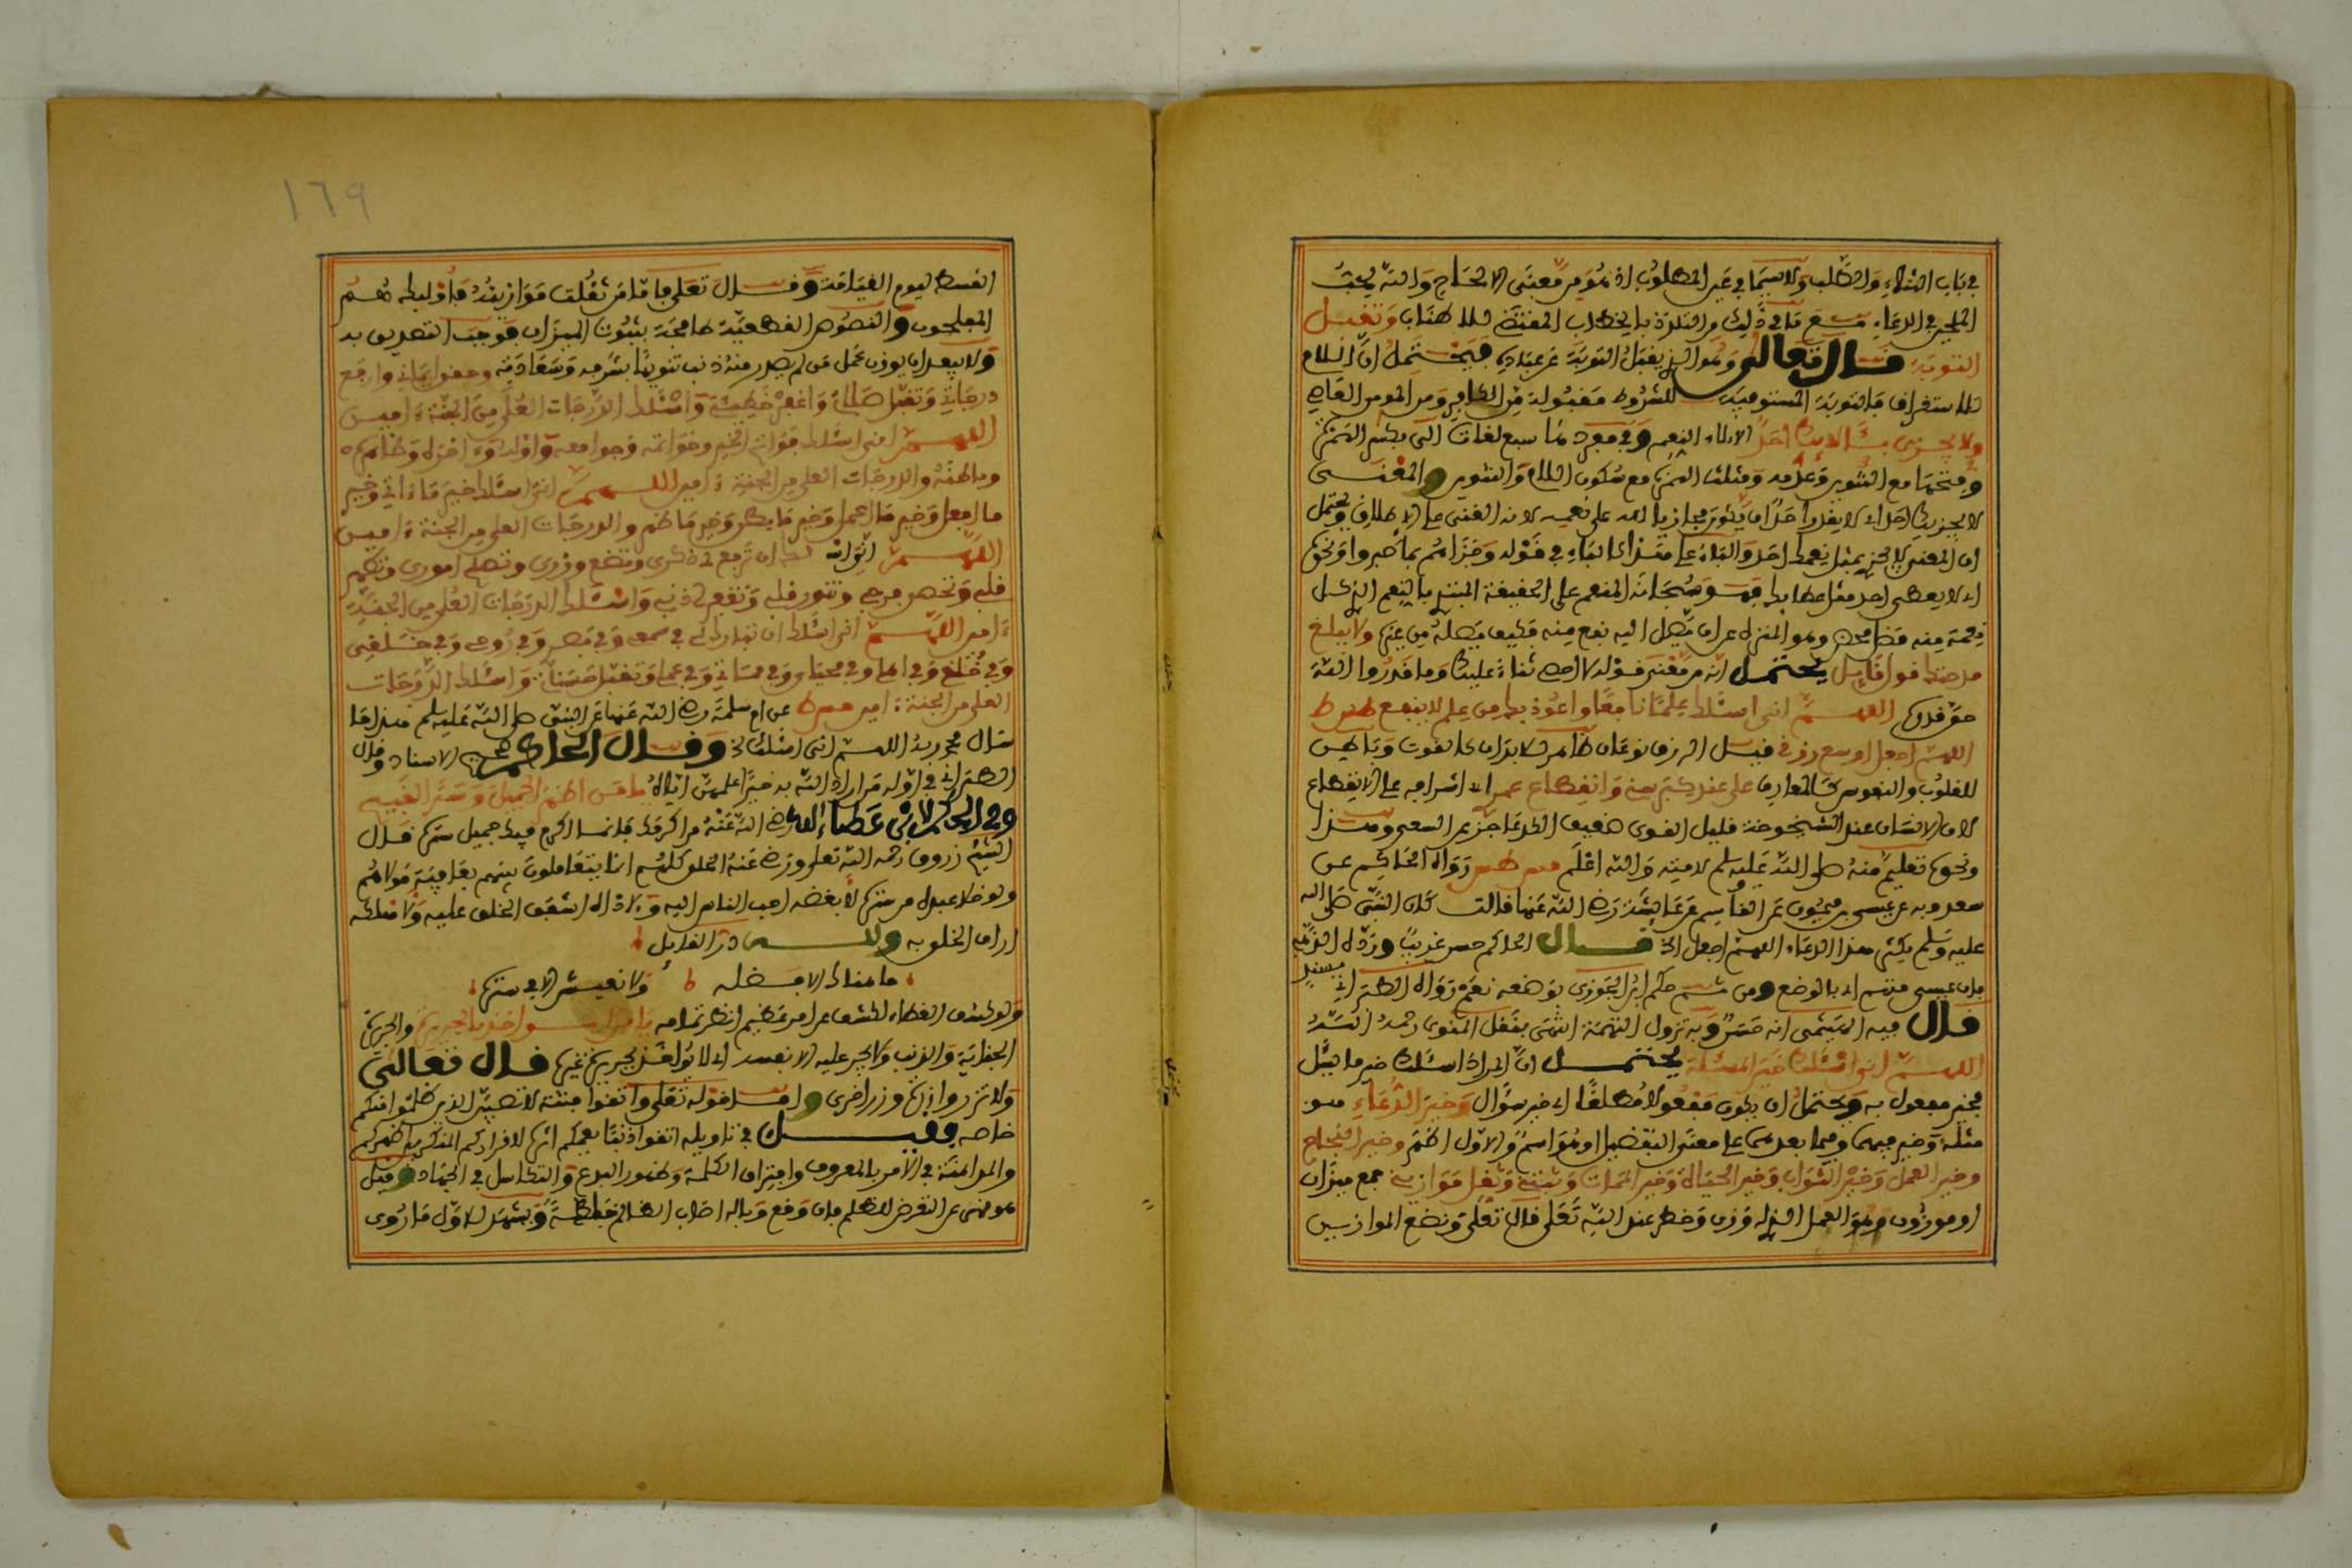 في باب الثناء والطلب ولاسيما في غير المطلوب اذ هو من معنى الالحاح والله يحب
الملح في الدعاء مع ما في ذلك من التلذذ بالخطاب وتقبل
التوبة قال تعالى وهو الذي يقبل التوبة عن عباده فيحتمل ان اللام
للاستغراق فالتوبة المستوفية للشروط مقبولة من الكافر ومن المومن العاصي
ولا يجزي بئالائك احد الالاء النعم وفي مفرده سبع لغات الى بكسر الهمزة
وفتحها مع التنوين وعدمه ومثلث الهمزة مع سكون اللام والتنوين والمعنى
لا يجزيك احد اي لا يقدر احد ان يكون مجازيا لله على نعمه لانه الغني على الاطلاق ويحتمل
ان المعنى لا يجزي بمثل نعمك احد والباء على هذا كالباء في قوله وجزاهم بما صبروا ونحوه
اي لا يعطي احد مثل عطائك فهو سبحانه المنعم على الحقيقة المبتدئ بالنعم الذي كل
نعمة منه فضل محض وهو المنزه عن ان يصل اليه نفع منه فكيف يصله من غيره ولا يبلغ
مدحتك قول قايل يحتمل انه من معنى قوله لا احصي ثناء عليك وما قدروا الله
حق قدره اللهم اني اسئلك علما نافعا واعوذ بك من علم لا ينفع طس ط
اللهم اجعل اوسع رزقك فيل الرزق نوعان ظاهر للابدان كالقوت وباطن
للقلوب والنفوس كالمعارف علي عند كبر سني وانقطاع عمري اي اشرافه على الانقطاع
لان الانسان عند الشيخوخة قليل القوى ضعيف الكد عاجز عن السعي وهذا
ونحوه تعليم منه صلى الله عليه وسلم لامته والله اعلم مس طس رواه الحاكم عن
سعدويه عن عيسى بن ميمون عن القاسم عن عايشة رضي الله عنها قالت كان النبي صلى الله
عليه وسلم يكثر هذا الدعاء اللهم اجعل الخ قال الحاكم حسن غريب ورده الذهبي
بان عيسى متهم اي بالوضع ومن ثم حكم ابن الجوزي بوضعه نعم رواه الطبراني بسند
قال فيه الهيثمي انه حسن وبه تزول التهمة انتهى بنقل المناوي رحمه الله
اللهم اني اسئلك خير المسئلة يحتمل ان المراد اسئلك خير ما يسئل
فخير مفعول به ويحتمل ان يكون مفعولا مطلقا اي خير سؤال وخير الدعاء هو
مثله وخير فيهما وفيما بعدهما على معنى التفضيل او هو اسم والاول اظهر وخير النجاح
وخير العمل وخير الثواب وخير الحياة وخير الممات وثبتني وثقل موازيني جمع ميزان
او موزون وهو العمل الذي له وزن وخطر عند الله تعلى قال تعلى ونضع الموازين
١٦٩
القسط ليوم القيامة وقال تعلى فاما من ثقلت موازينه فاولئك هم
المفلحون والنصوص القطعية طافحة بثبوت الميزان فوجب التصديق به
ولا يبعد ان يوزن عمل من لم يصدر منه ذنب تنويها بشرفه وسعادته وحقق ايماني وارفع
درجاتي وتقبل صلاتي واغفر خطيئتي واسئلك الدرجات العلى من الجنة ءامين
اللهم اني اسئلك فواتح الخير وخواتمه وجوامعه واوله وءاخره وظاهره
وباطنه والدرجات العلى من الجنة ءامين اللهم اني اسئلك خير ما ءاتي وخير
ما افعل وخير ما اعمل وخير ما بطن وخير ما ظهر والدرجات العلى من الجنة ءامين
اللهم اني اسئلك ان ترفع لي ذكري وتضع وزري وتصلح اموري وتطهر
قلبي وتحصن فرجي وتنور قلبي وتغفر لي ذنبي واسئلك الدرجات العلى من الجنة
ءامين اللهم اني اسئلك ان تبارك لي في سمعي وفي بصري وفي روحي وفي خلقي
وفي خلقي وفي اهلي وفي محياي وفي مماتي وفي عملي وتقبل حسناتي واسئلك الدرجات
العلى من الجنة ءامين مس ط عن ام سلمة رضي الله عنها عن النبي صلى الله عليه وسلم هذا ما
سال محمد ربه اللهم اني اسئلك الخ وقال الحاكم صحيح الاسناد وقال
الطبراني في اوله من اراد الله به خيرا علمهن اياه يا من اظهر الجميل وستر القبيح
وفي الحكم لابن عطاء الله رضي الله عنه من اكرمك فانما اكرم فيك جميل ستره قال
الشيخ زروق رحمه الله تعلى ورضي عنه الخلق كلهم انما يتعاملون بينهم بعافية مولاهم
ولو خلا عبده من ستره لابغضه احب الناس اليه ولاذاه اشفق الخلق عليه ولا هلكه
اراف الخلق به ولله در القايل
ما هناك الا فضله ولا نعيش الا في ستره
ولو كشف الغطاء لكشف عن امر عظيم انظر تمامه يا من لا يواخذ بالجريرة والجريرة
الجناية والذنب ولا يجر عليه الا نفسه اي لا يواخذ بجريرة غيره قال تعالى
ولا تزر وازرة وزر اخرى واما قوله تعلى واتقوا فتنة لا تصيبن الذين ظلموا منكم
خاصة فقيل في تاويله اتقوا ذنبا يعمكم اثره كاقراركم المنكر بين اظهركم
والمداهنة في الامر بالمعروف وافتراق الكلمة وظهور البدع والتكاسل في الجهاد وقيل
هو نهي عن التعرض للظلم فان وقع وباله اصاب الظالم خاصة ويشهد للاول ما روي